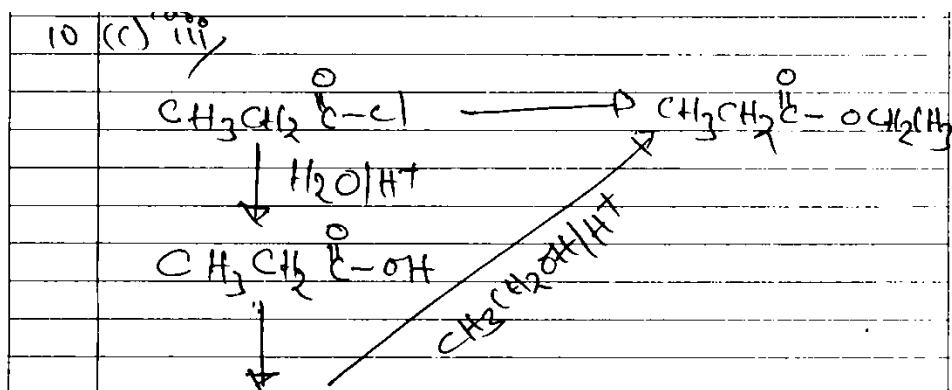 10 (c) iii
O O
CH3CH2 C-Cl → CH3CH2 C- OCH2CH3
↓ H2O/H+
O
CH3CH2 C-OH
CH3CH2OH/H+
↓